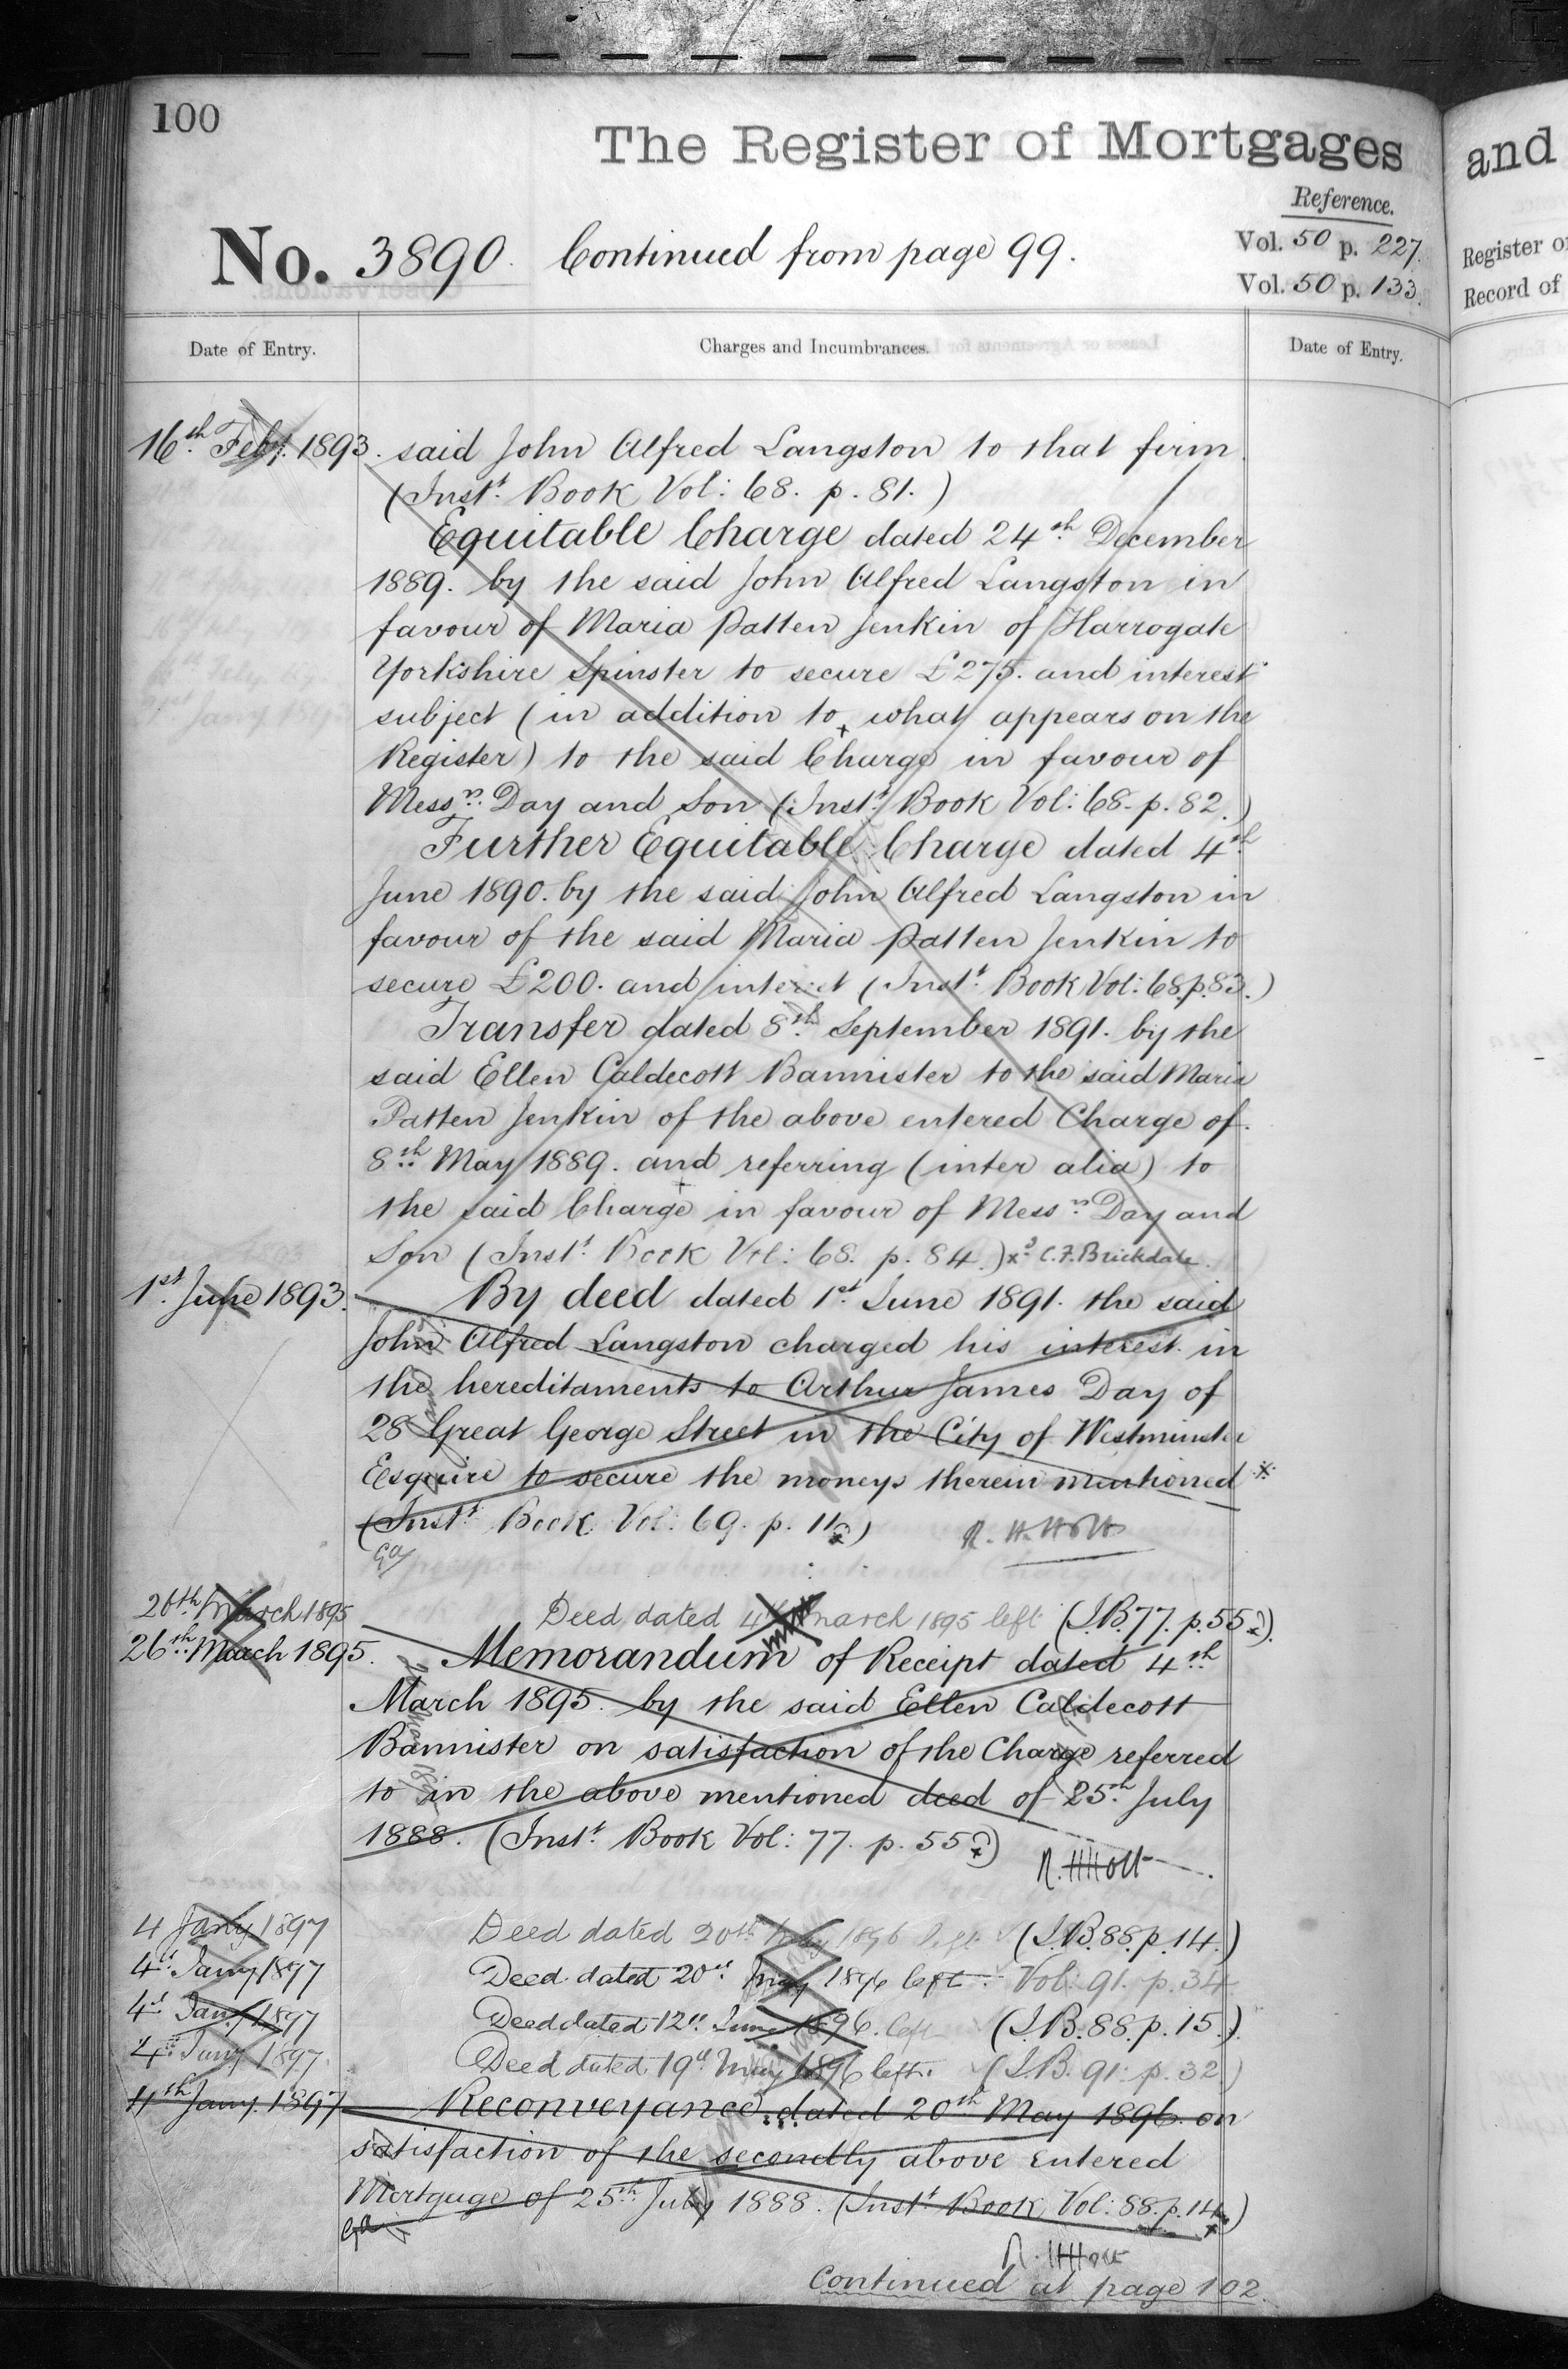 100
The Register of Mortgages
and
Reference.
No. 3890. Continued from page 99.
Vol. 50 p. 227.
Vol. 50 p. 133.
Register
Record of
Date of Entry.
Charges and Incumbrances.
Date of Entry.
16th Feby. 1893. said John Alfred Langston to that firm
(Inst. Book Vol: 68. p. 81.)
Equitable Charge dated 24th December
1889. by the said John Alfred Langston in
favour of Maria Patten Jenkin of Harrogate
Yorkshire Spinster to secure £275. and interest
subject (in addition to what appears on the
Register) to the said Charge in favour of
Messrs. Day and Son (Inst. Book Vol: 68. p. 82.)
Further Equitable Charge dated 4th
June 1890. by the said John Alfred Langston in
favour of the said Maria Patten Jenkin to
secure £200. and interest (Inst. Book Vol: 68. p. 83.)
Transfer dated 8th September 1891. by the
said Ellen Caldecott Bannister to the said Maria
Patten Jenkin of the above entered Charge of
8th May 1889. and referring (inter alia) to
the said Charge in favour of Messrs. Day and
Son (Inst. Book Vol: 68. p. 84.) C.F. Brickdale.
1st. June 1893. By deed dated 1st. June 1891. the said
John Alfred Langston charged his interest in
the hereditaments to Arthur James Day of
28 Great George Street in the City of Westminster
Esquire to secure the moneys therein mentioned
(Inst. Book Vol: 69. p. 11) R. H. Holt
26th March 1895 Deed dated 4th March 1895 left (I.B. 77. p. 55).
26th March 1895. Memorandum of Receipt dated 4th
March 1895. by the said Ellen Caldecott
Bannister on satisfaction of the Charge referred
to in the above mentioned deed of 25th July
1888. (Inst. Book Vol: 77. p. 55)
R. H Holt
4 Jany 1897 Deed dated 20th May 1896 left (I.B. 88. p. 14.)
4th Jany 1897 Deed dated 20th May 1896 left. Vol: 91. p. 34
4th Jany 1897 Deed dated 12th June 1896. left (I.B. 88. p. 15.)
4th Jany 1897. Deed dated 19th May 1896 left. (I.B. 91. p. 32.)
4th Jany. 1897 Reconveyance dated 20th May 1896. on
satisfaction of the secondly above entered
Mortgage of 25th July 1888. (Inst. Book Vol: 88. p. 14.)
R. H Holt
Continued at page 102.